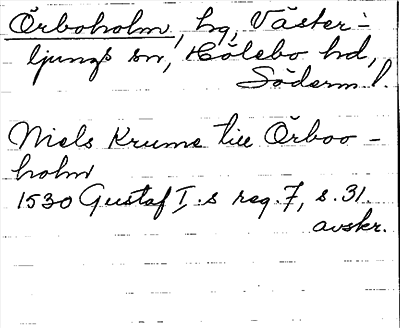 Örboholm, hg, Väster-
ljungs sn, Hölebo hd,
Söderm l.
Niels Krume till Örboo-
holm
1530 Gustaf I:s reg. 7, s. 31.
avskr.